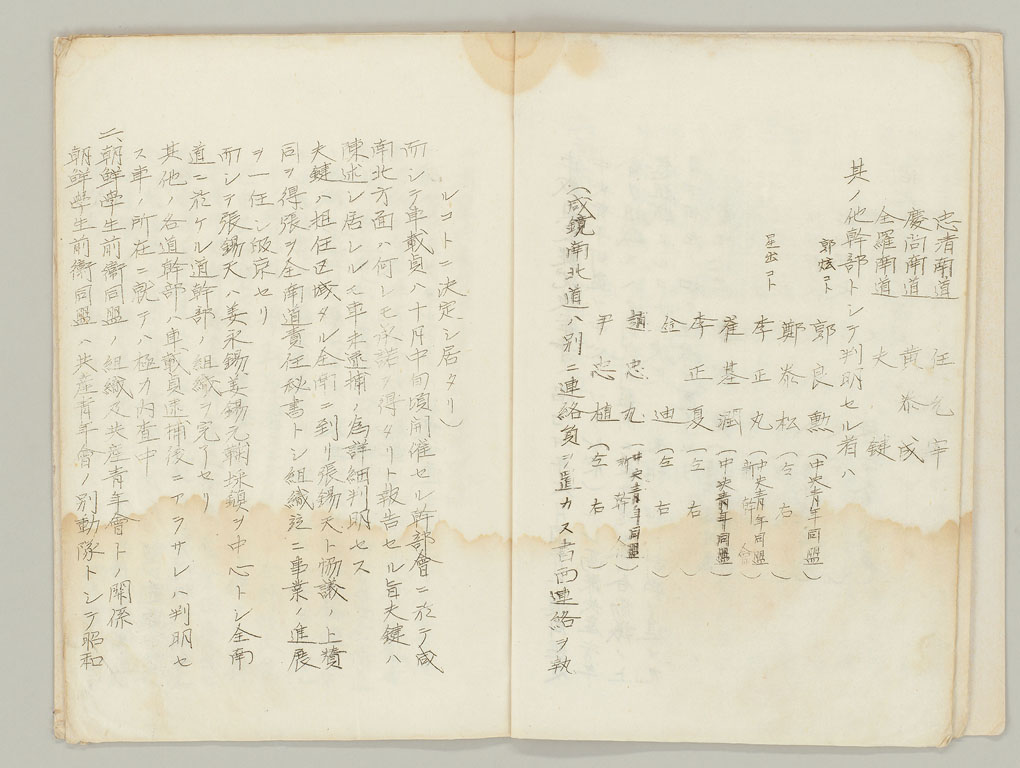 忠清南道 任允宰
慶尚南道 黄泰成
全羅南道 夫鍵
其ノ他幹部トシテ判明セル者ハ
郭炫コト 郭良勲(中央青年同盟)
鄭泰松(仝右)
星宏コト 李正丸(中央青年同盟 新幹会)
崔基潤(中央青年同盟)
李正夏(仝右)
迪(仝右)
趙忠九(中央青年同盟 新幹会)
尹忠植(仝右)
(咸鏡南北道ハ別ニ連絡員ヲ置カス書面連絡ヲ執
ルコトニ決定シ居タリ)
而シテ車載貞ハ十月中旬頃開催セル幹部會ニ於テ咸
南北方面ハ何レモ承諾ヲ得タリト報告セル旨夫鍵ハ
陳述シ居レルモ車未逮捕ノ為詳細判明セス
夫鍵ハ担任区域タル全南ニ到リ張錫天ト協議ノ上賛
同ヲ得張ヲ全南道責任秘書トシ組織並ニ事業ノ進展
ヲ一任シ皈京セリ
而シテ張錫天ハ姜永錫姜錫元鞠採鎮ヲ中心トシ全南
道ニ於ケル道幹部ノ組織ヲ完了セリ
其他ノ各道幹部ハ車載貞逮捕後ニアラサレハ判明セ
ス車ノ所在ニ就テハ極力内査中
二、朝鮮學生前衛同盟ノ組織及共産青年會トノ関係
朝鮮學生前衛同盟ハ共産青年會ノ別動隊トシテ昭和